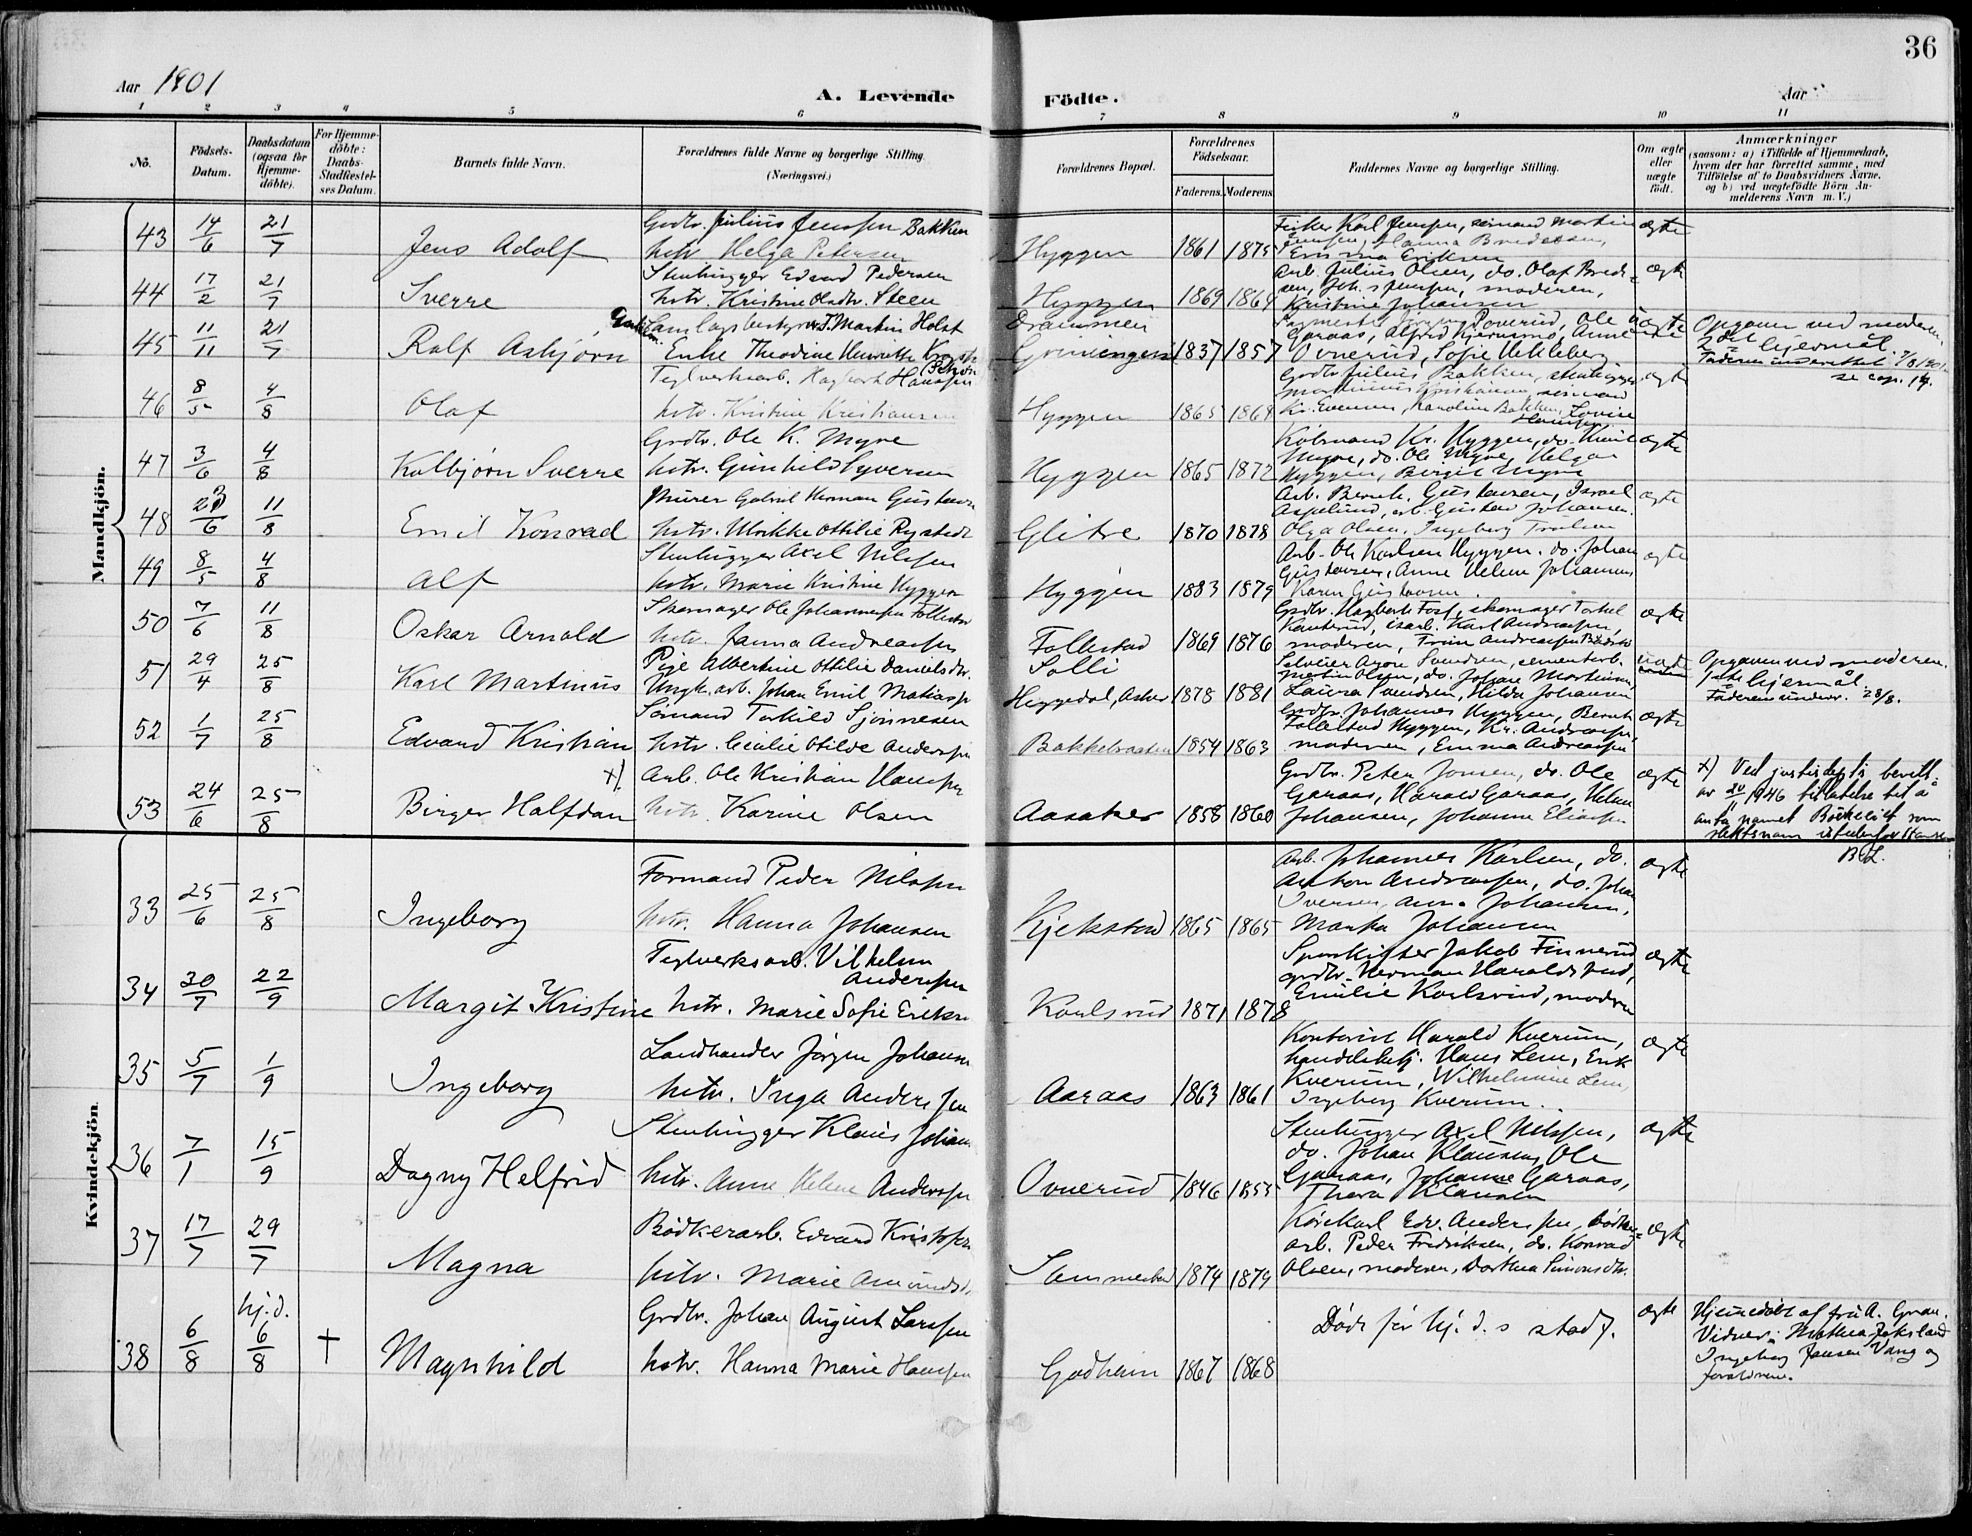 36
Aar 1901
A. Levende Födte.
Aar
1 2 3 4 5 6 7 8 9 10 11
No.
Födsels-Datum.
Daabsdatum (ogsaa for Hjemme-döbte).
For Hjemme-döbte: Daabs-Stadfæstel-ses Datum.
Barnets fulde Navn.
Forældrenes fulde Navne og borgerlige Stilling. (Næringsvei.)
Forældrenes Bopæl.
Forældrenes Födselsaar.
Faderens. Moderens.
Faddernes Navne og borgerlige Stilling.
Om ægte eller uægte födt.
Anmærkninger
(saasom: a) i Tilfælde af Hjemmedaab, hvem der har forrettet samme, med Tilföielse af to Daabsvidners Navne, og b) ved uægtefödte Börn An-melderens Navn m. V.)
Mandkjön.
43 14/6 21/7 Jens Adolf
Grdbr. Julius Jenssen Bakken
hstr. Helga Petersen
Hyggen 1861 1875
Fisker Karl Jenssen, sömand Martin
Jenssen, Hanna Bredesen,
Emma Eriksen
ægte
44 17/2 21/7 Sverre
Stenhugger Edvard Pedersen
hstr. Kristine Olsdtr. Steen
Hyggen 1869 1864
Arb. Julius Olsen, do. Olaf Bred-
sen, Joh.s Jenssen, moderen,
Kristine Johansen
ægte
45 11/11 21/7 Ralf Asbjörn
Martin Holst
Enke Theodine Henriette
Drammen
Grimengen 1837 1857
Poverud, Ole
Garaas, Alfred Kjernsmo, Anne
Ovnerud, Sofie Hekleberg
uægte
Opgaven ved moderen.
2det leiermål.
Faderen underrettet 7/8 1901
se cop. 14.
46 8/5 4/8 Olaf
Teglverksarb. Hagbart Hanssen
hstr. Kristine Kristiansen
Hyggen 1865 1869
Grdbr. Julius Bakken, stenhugger
Martinius Kristiansen, sömand
Kr. Evensen, Karoline Bakken, Lovise
Hansen
ægte
47 3/6 4/8 Kolbjörn Sverre
Grdbr. Ole K. Myre
hstr. Gunhild Syversen
Hyggen 1865 1872
Köbmand Kr. Hyggen, do. Emil
Myre, do. Ole Myre, Helga
Hyggen, Birgit Myre
ægte
48 23/6 11/8 Emil Konrad
Murer Gabriel Herman Gustavsen
hstr. Ulrikke Ottilie Rystedt
Glitre 1870 1878
Arb. Bernh. Gustavsen, Israel
Aspelund, arb. Gustav Johansen
Olga Olsen, Ingeborg Truelsen
ægte
49 8/5 4/8 Alf
Stenhugger Axel Nilssen
hstr. Marie Kristine Hyggen
Hyggen 1883 1879
Arb. Ole Karlsen Hyggen, do. Johan
Gustavsen, Anne Helene Johannes
Karen Gustavsen.
ægte
50 7/6 11/8 Oskar Arnold
Skomager Ole Johannessen Follestad
hstr. Janna Andreassen
Follestad 1869 1876
Grdbr. Hagbart Foss, skomager Torkel
Kanterud, isarb. Karl Andreassen,
moderen, Trine Andreassen
ægte
51 29/4 25/8 Karl Martinus
Pige Albertine Ottilie Danielsdtr.
Ungk. arb. Johan Emil Matiassen
Solli
Heggedal, Asker 1878 1881
Selveier Aron Svendsen, cementarb.
Martin Olsen, do. Johan Martinsen
Laura Svendsen, Hilda Johansen
uægte
Opgaven ved moderen.
1ste leiermål.
Faderen underr. 28/8.
52 1/7 25/8 Edvard Kristian
Sömand Torkild Sjönnesen
hstr. Cecilie Otilde Anderssen
Bakkebraaten 1854 1863
Grdbr. Johannes Hyggen, Bernh.
Follestad Hyggen, Kr. Andreassen
moderen, Emma Andreassen
ægte
53 24/6 25/8 Birger Halfdan x).
Arb. Ole Kristian Hanssen
hstr. Karine Olsen
Aasaker 1858 1860
Grdbr. Peter Jonsen, do. Ole
Garaas, Harald Garaas, Helene
Johansen, Johanne Eliassen
ægte
x) Ved justisdep.ts bevill.
av 20/11 1946 tillatelse til å
anta navnet Böckelid som
slektsnavn istedenfor Hansen
B.L.
Kvindekjön.
33 25/6 25/8 Ingeborg
Formand Peder Nilssen
hstr. Hanna Johansen
Kjekstad 1865 1865
Arb. Johannes Karlsen, do.
Anton Andreassen, do. Johan
Iversen, Anna Johansen,
Martha Johansen
ægte
34 30/7 22/9 Margit Kristine
Teglverksarb. Vilhelm
Anderssen
hstr. Marie Sofie Eriksen
Karlsrud 1871 1878
Sporskifter Jakob Finnerud
grdbr. Herman Haraldsrud,
Emilie Karlsrud, moderen
ægte
35 5/7 1/9 Ingeborg
Landhandler Jörgen Johansen
hstr. Inga Anderssen
Aaraas 1863 1861
Kontorist Harald Kverum,
handelsbetj. Hans Lem, Erik
Kverum, Wilhelmine Lem,
Ingeborg Kverum.
ægte
36 7/1 15/9 Dagny Helfrid
Stenhugger Klaus Johansen
hstr. Anne Helene Anderssen
Ovnerud 1846 1855
Stenhugger Axel Nilssen,
do. Johan Klausen, Ole
Garaas, Johanne Garaas,
Thora Klausen
ægte
37 17/7 29/7 Magna
Bödkerarb. Edvard Kristoffersen
hstr. Marie Amundsd.
Sammerstad 1874 1879
Körekarl Edv. Anderssen, bödker-
arb. Peder Fredriksen, do. Konrad
Olsen, moderen, Dorthea Simonsdtr.
ægte
38 6/8 hj.d. 6/8 † Magnhild
Grdbr. Johan August Larssen
hstr. Hanna Marie Hanssen
Godheim 1867 1868
Döde för hj.d.s stadf.
ægte
Hjemmedöbt af fru A. Gran.
Vidner: Mathea Jaksland
Ingeborg Jansen Vang og
forældrene.